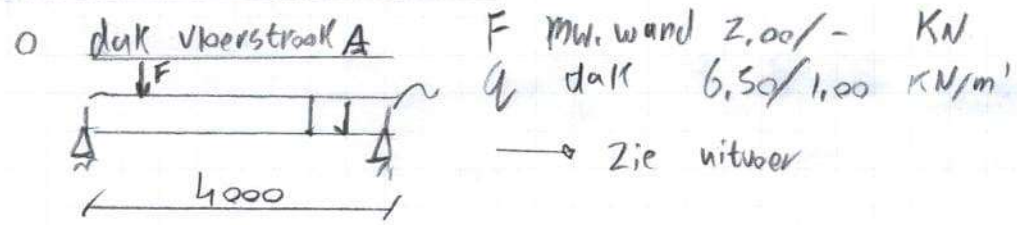 o dak vloerstrook A F mw. wand 2,00/- KN
F q dak 6,50/1,00 KN/m'
→ Zie uitvoer
4000